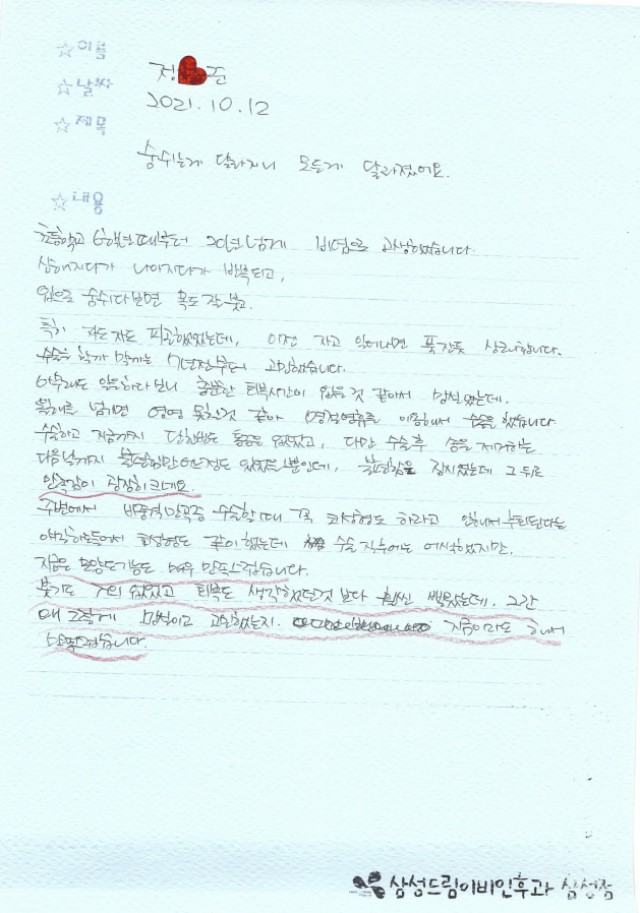 ☆이름
정❤준
☆날짜
2021.10.12
☆제목
숨쉬는게 달라지니 모든게 달라졌어요.
☆내용
초등학교 6학년때부터 20년넘게 비염으로 고생했습니다
심해지다가 나아지다가 반복되고,
입으로 숨쉬다보면 목도 잘붓고.
특히 자도자도 피곤했었는데, 이젠 자고 일어나면 푹잔듯 상쾌합니다.
수술을 할까 말까는 7년전부터 고민했습니다.
아무래도 일을하다보니 충분한 회복시간이 없을것 같아서 망설였는데.
올해를 넘기면 영영 못할것 같아 명절연휴를 이용해서 수술을 했습니다
수술하고 지금까지 단한번도 통증은 없었고, 다만 수술후 솜을 제거하는
다음날까지 불편함만 어느정도 있었을뿐인데, 불편함을 잠시였는데 그 뒤로
만족감이 굉장히 크네요.
주변에서 비중격만곡증 수술할때 꼭 코성형도 하라고 안해서 후회된다는
얘기하는들어서 코성형도 같이 했는데 수술 직후에는 어색했지만.
지금은 모양도기능도 매우 만족스럽습니다.
붓기도 거의 없었고 회복도 생각했던것 보다 훨씬 빨랐는데, 그간
왜 그렇게 망설이고 고민했는지. 지금이라도 해서
만족스럽습니다.
삼성드림이비인후과 삼성점